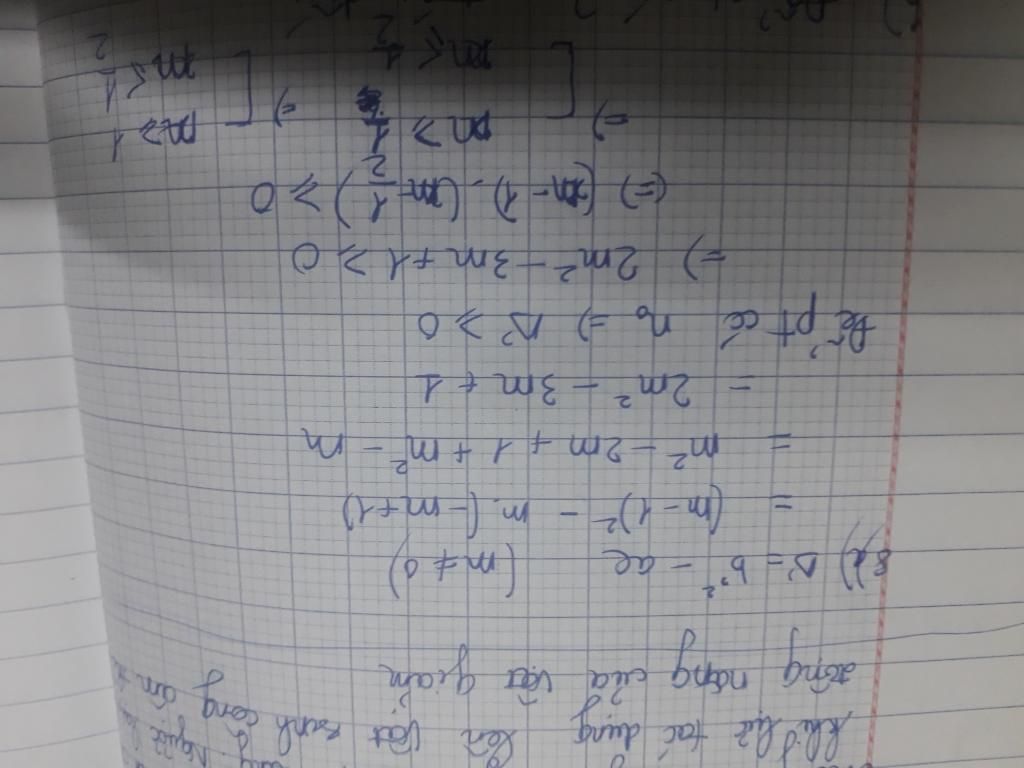 khi lực tác dụng lên vật sinh công âm
động năng của vật giảm
8d) Δ' = b'² - ac (m ≠ 0)
= (m - 1)² - m.(-m + 1)
= m² - 2m + 1 + m² - m
= 2m² - 3m + 1
Để pt có n₀ => Δ' ⩾ 0
=> 2m² - 3m + 1 ⩾ 0
(=) (m - 1).(m - 1/2) ⩾ 0
=) [ m ⩾ 1 =) [ m ⩾ 1
m ⩽ 1/2 m ⩽ 1/2